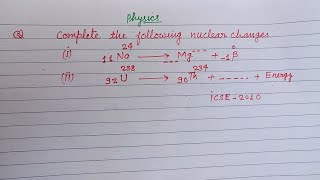 Physics
Q Complete the following nuclear changes
(i) ₁₁Na²⁴ → ___Mg--- + ₋₁β⁰
(ii) ₉₂U²³⁸ → ₉₀Th²³⁴ + ----- + Energy
iCSE-2010